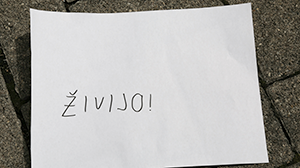 ŽIVIJO!